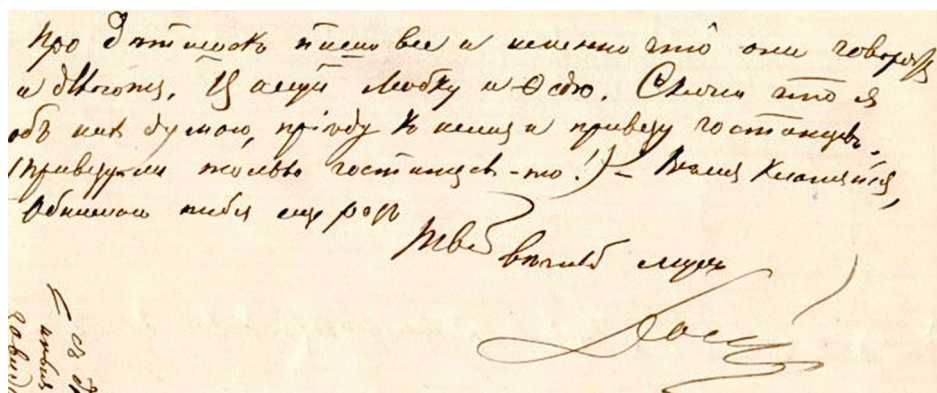 про дѣтишекъ пиши все и именно что они говорятъ
и дѣлаютъ. Цалуй Любку и Ѳедю. Скажи что я
объ нихъ думаю, пріѣду къ нимъ и привезу гостинцевъ.
(привезу-ли только гостинцевъ-то!) – Всѣмъ кланяйся,
Обнимаю тебя еще разъ
Твой вѣчный мужъ
Дост